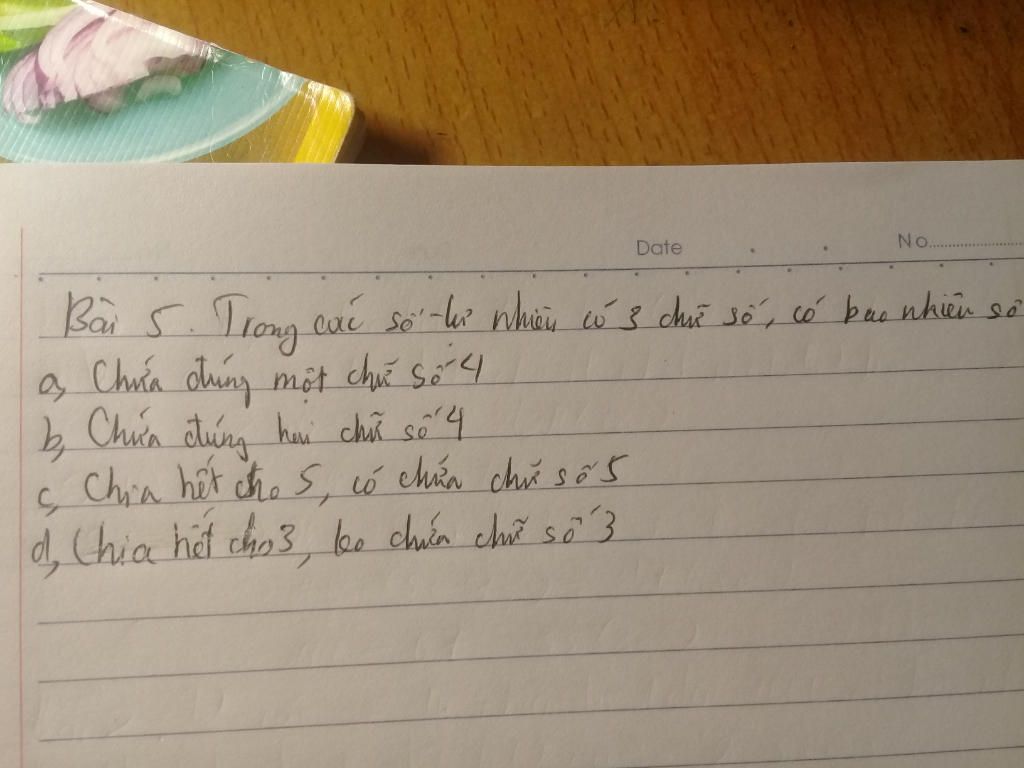 Date . . No.
Bài 5. Trong các số tự nhiên có 3 chữ số, có bao nhiêu số
a, Chứa đúng một chữ số 4
b, Chứa đúng hai chữ số 4
c, Chia hết cho 5, có chứa chữ số 5
d, Chia hết cho 3, ko chứa chữ số 3